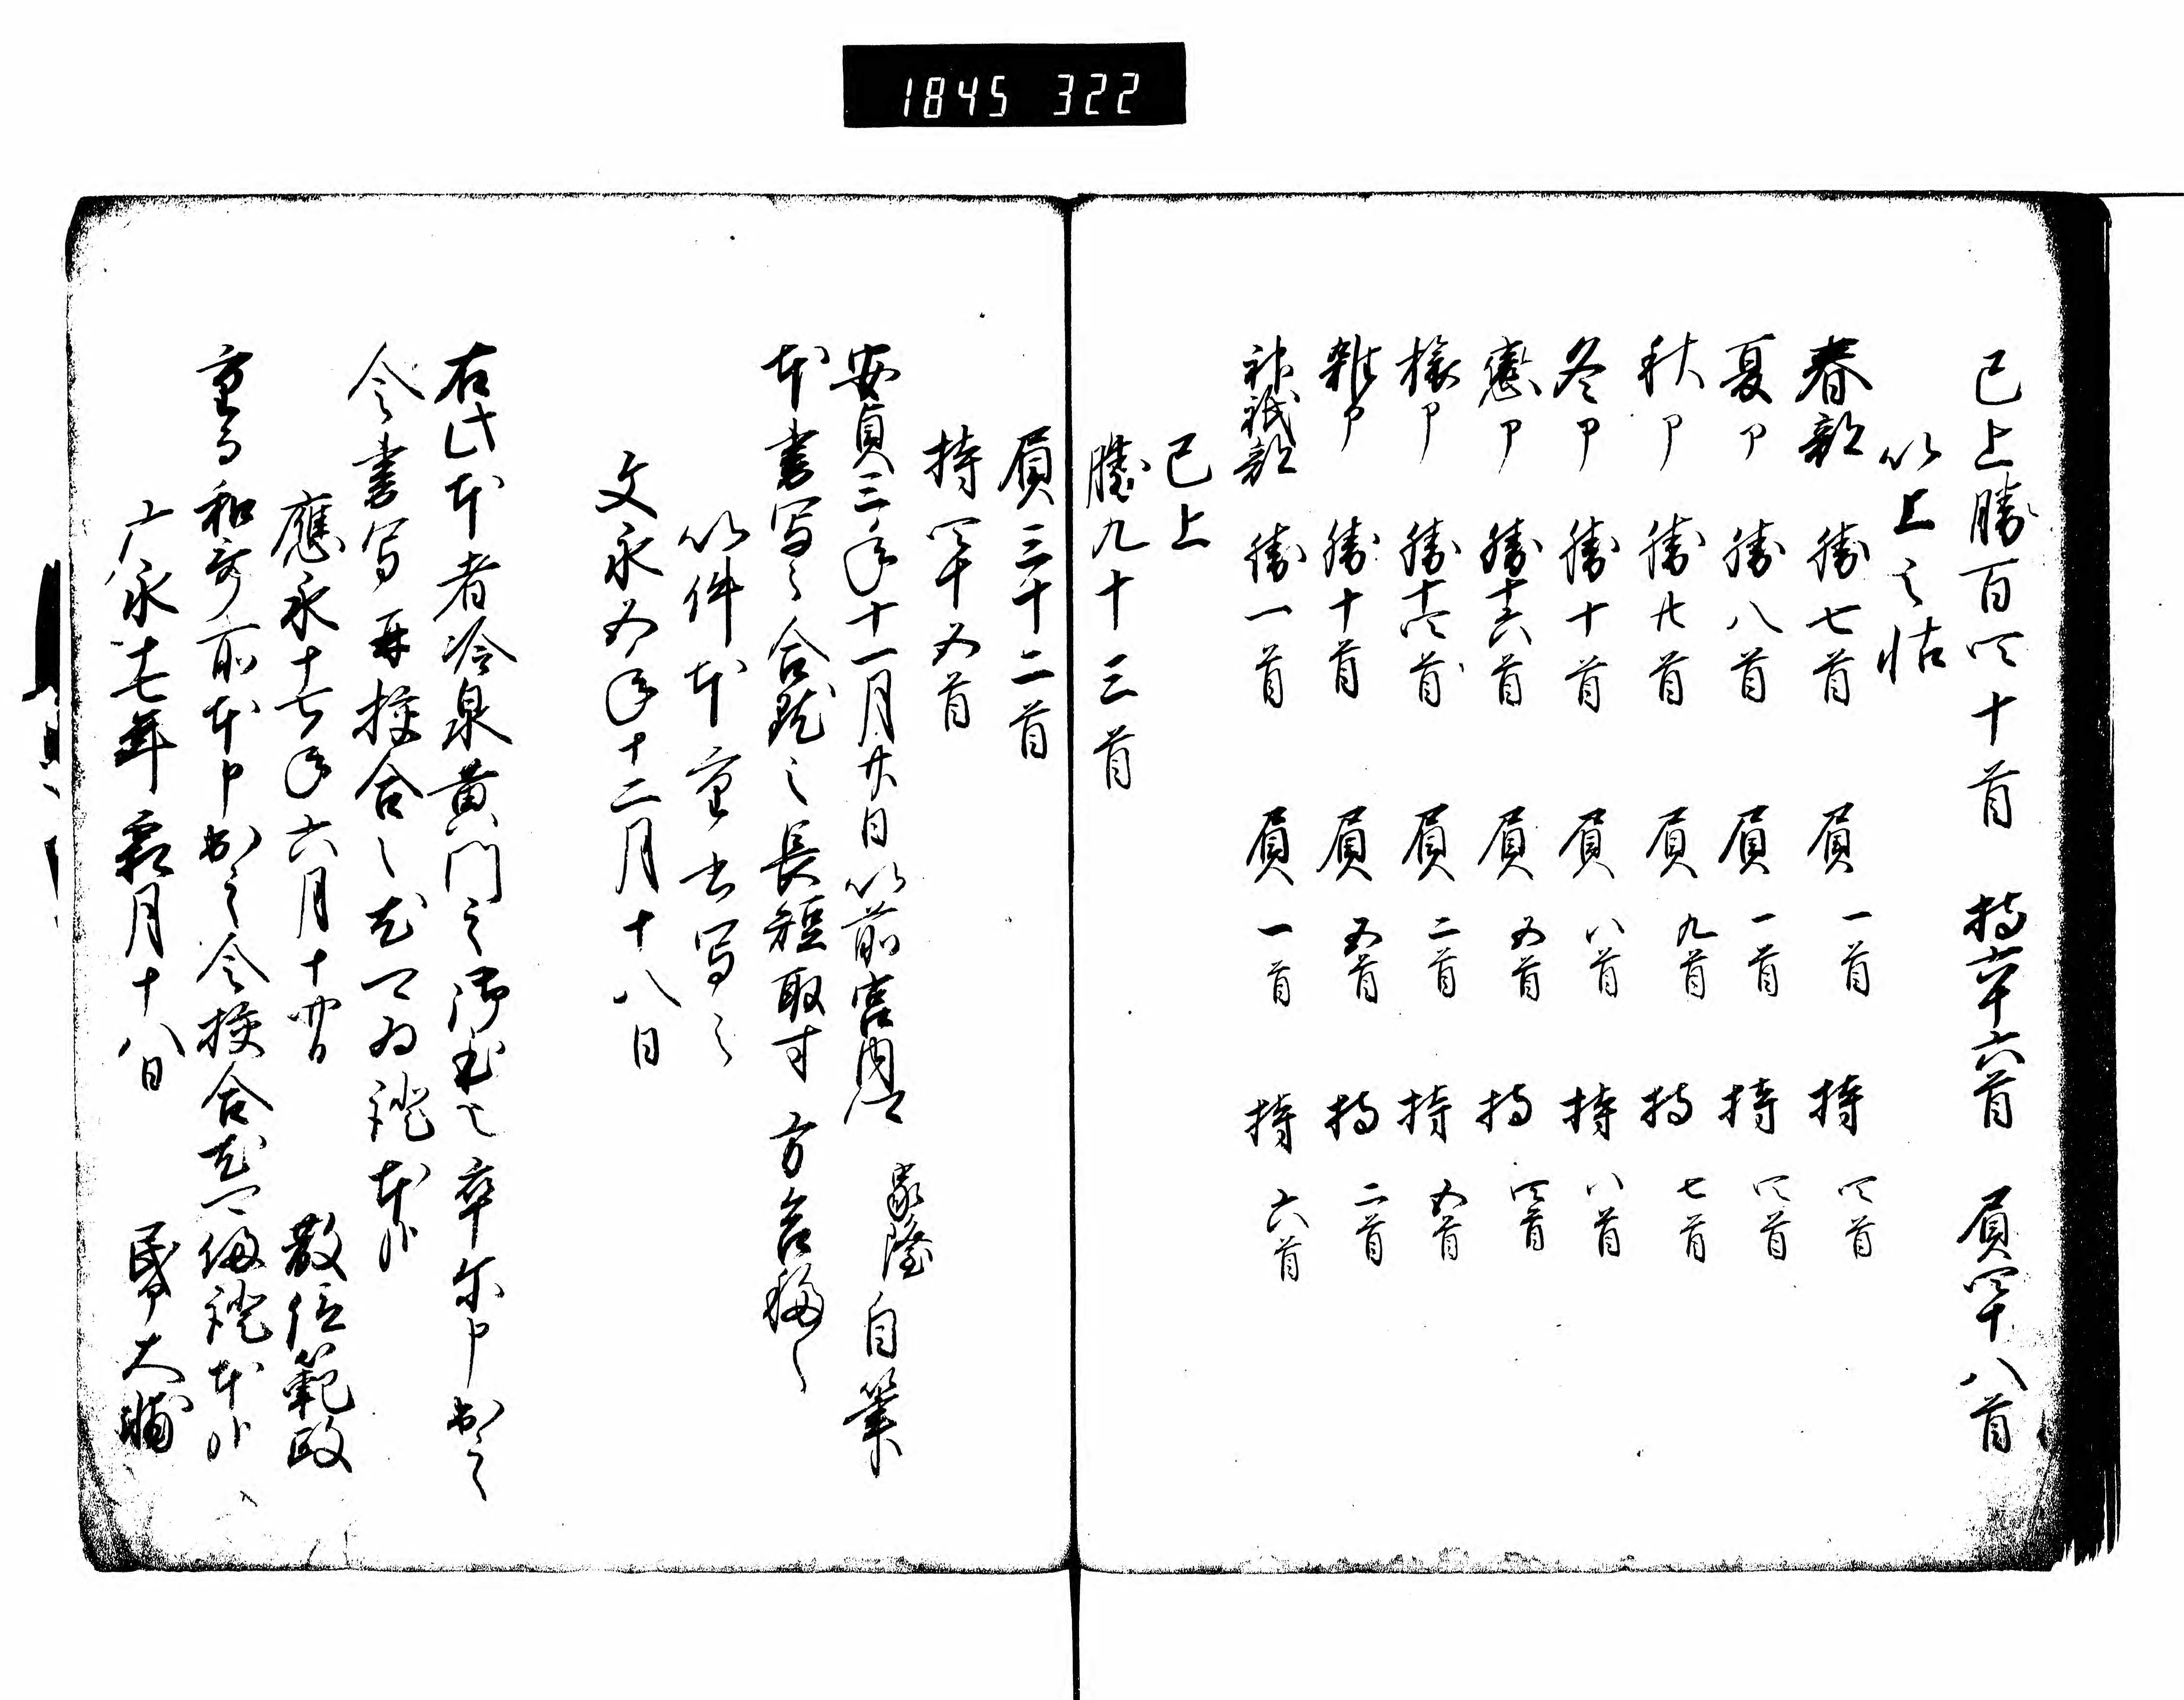 1845 322
已上勝百四十首 持六十六首 負四十八首
以上之帖
春部 勝七首 負一首 持四首
夏卩 勝八首 負一首 持四首
秋卩 勝廿首 負九首 持七首
冬卩 勝十首 負八首 持八首
恋卩 勝十六首 負五首 持四首
様卩 勝十四首 負二首 持五首
雑卩 勝十首 負五首 持二首
神祇部 勝一首 負一首 持六首
已上
勝九十三首
負三十二首
持四十五首
安貞三年十一月廿日以前宮内 家隆自筆
本書写之合 之長短取寸方 合
以件本重書写之
文永五年十二月十八日
右此本者冷泉黄門之 卒尓申出之
令書写再挍合之 証本
應永十七年六月十 日 散位範政
重 和 本申出之令挍合 証本
广永十七年霜月十八日 大輔